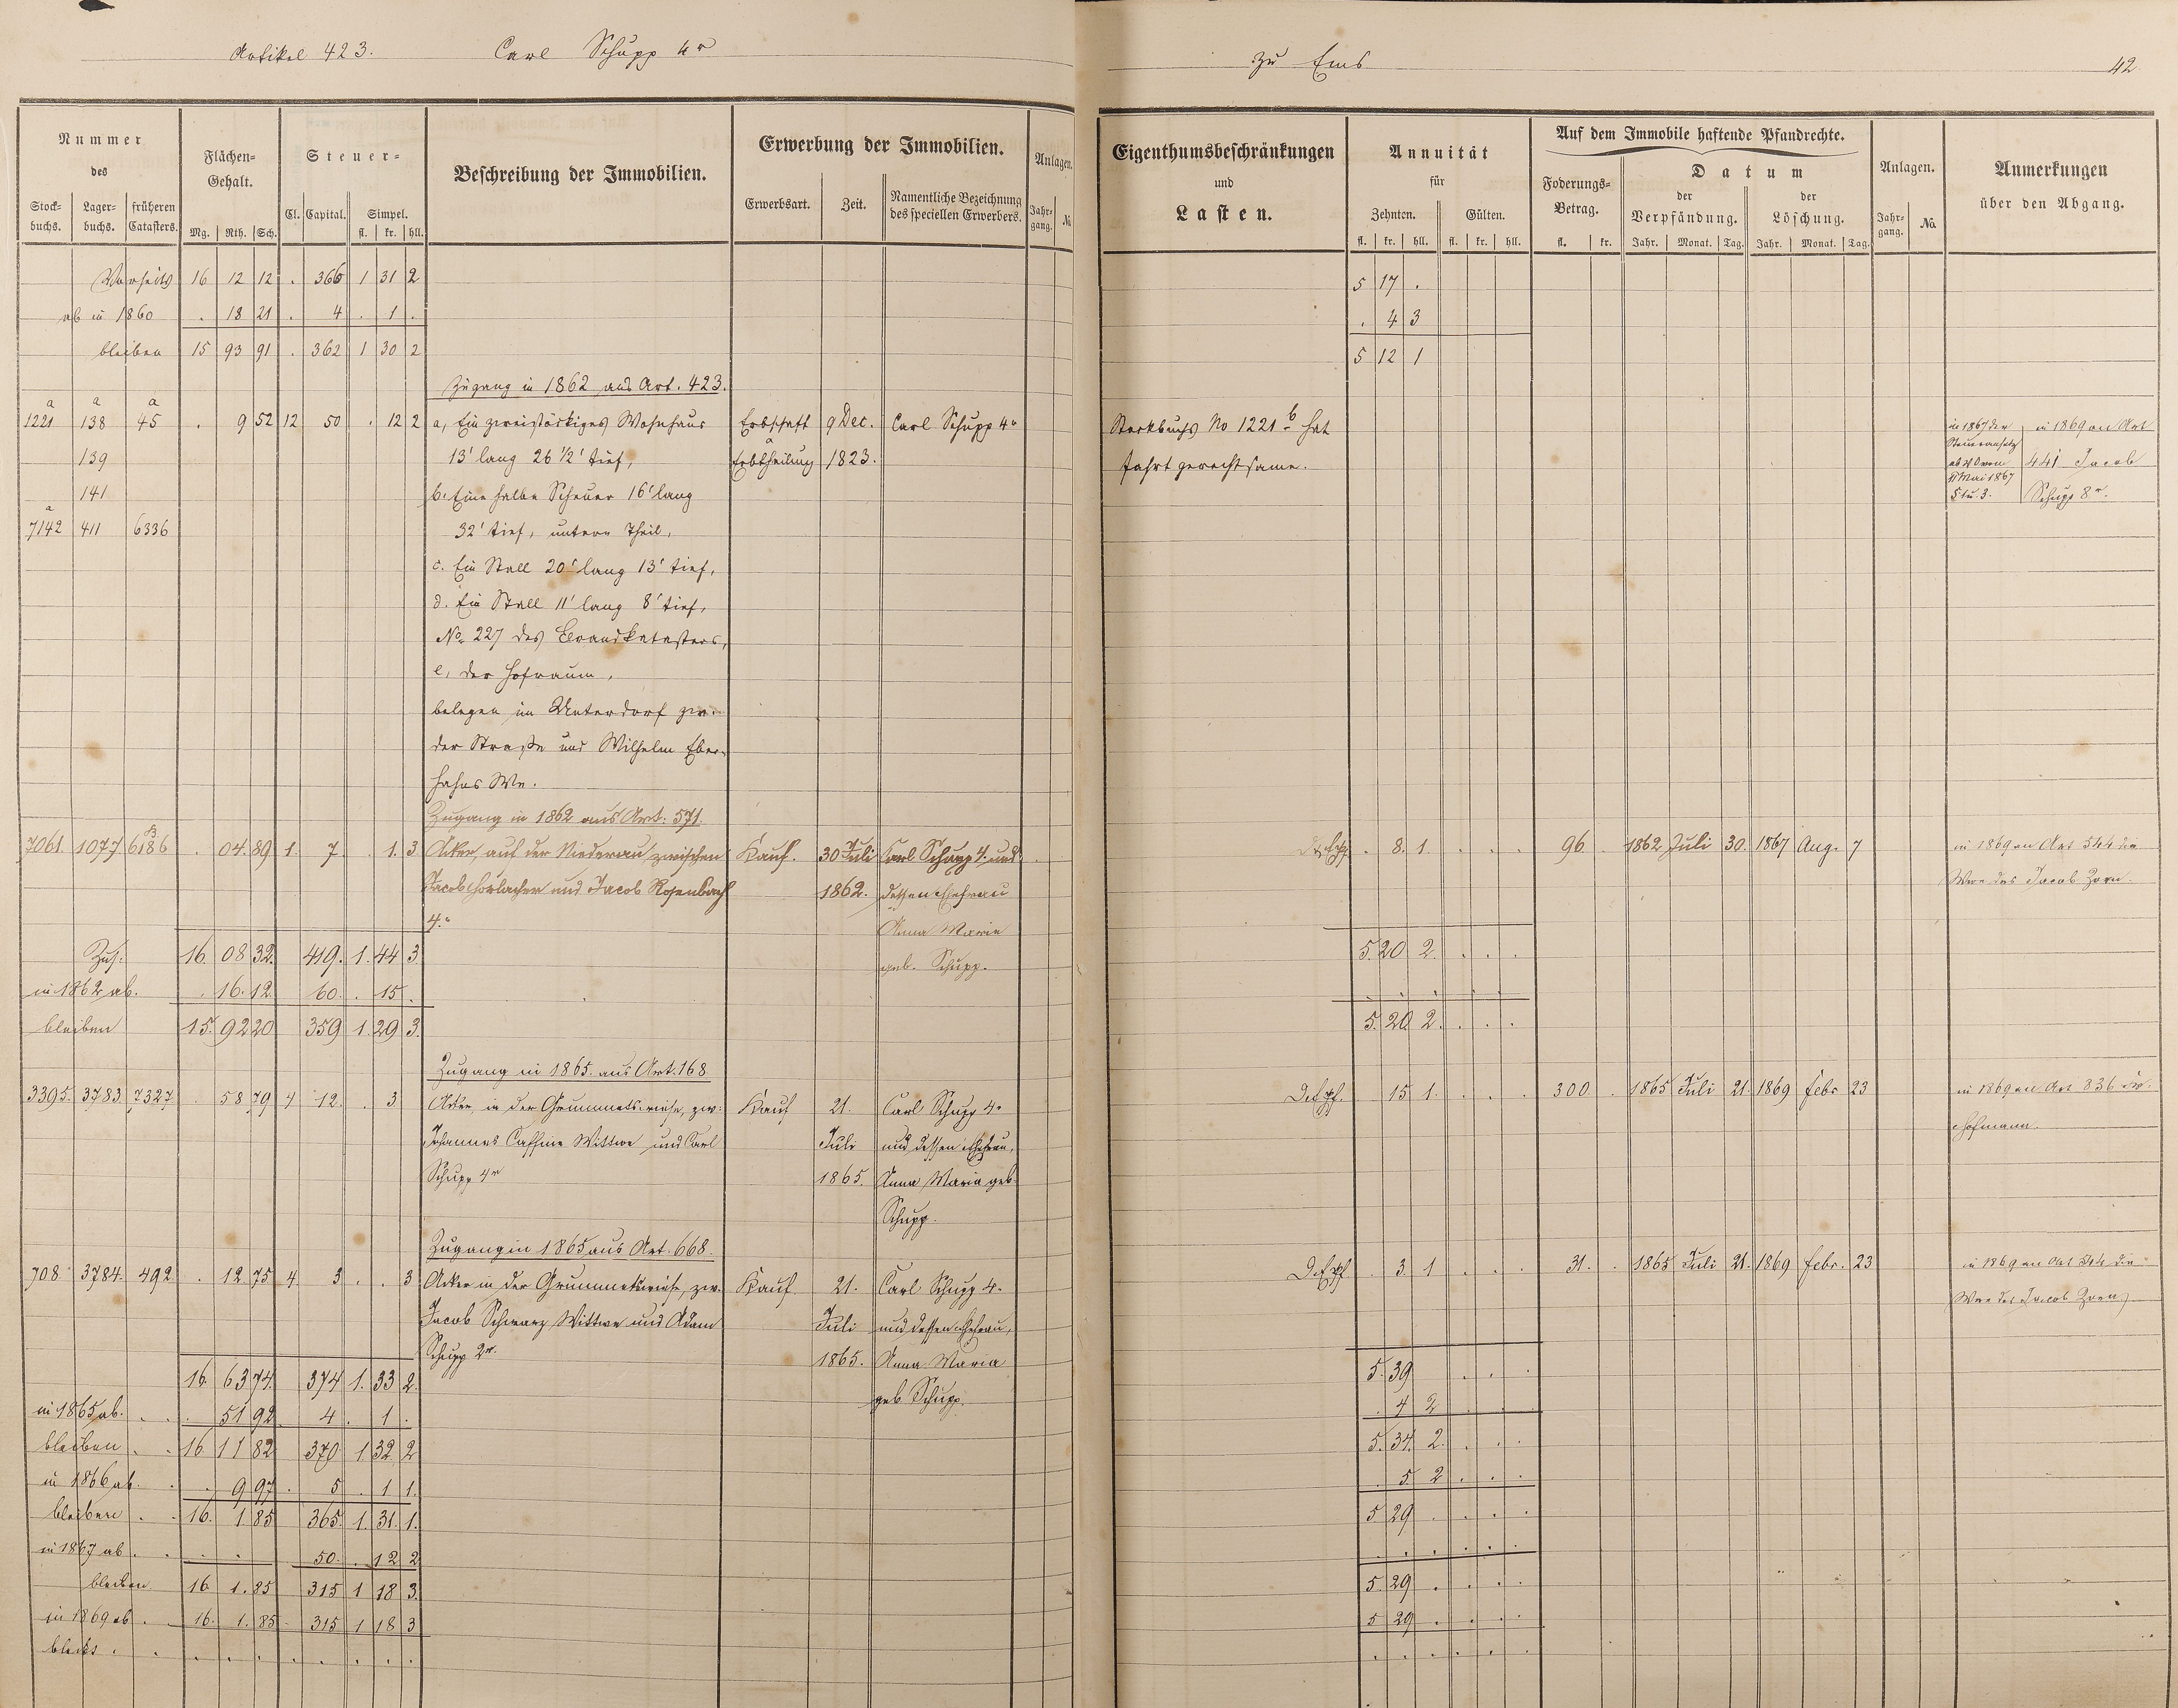 Artikel 423. Carl Schupp 4r
zu Ems 42
Nummer
des
Stock-
buchs. Lager-
buchs. früheren
Catasters.
Flächen-
Gehalt.
Mg. Rth. Sch.
Steuer-
Cl. Capital. Simpel.
fl. kr. hll.
Beschreibung der Immobilien.
Erwerbung der Immobilien.
Erwerbsart. Zeit. Namentliche Bezeichnung
des speciellen Erwerbers.
Anlagen.
Jahr-
gang. No.
Eigenthumsbeschränkungen
und
Lasten.
Annuität
für
Zehnten. Gülten.
fl. kr. hll. fl. kr. hll.
Auf dem Immobile haftende Pfandrechte.
Foderungs-
Betrag.
fl. kr.
Datum
der
Verpfändung. der
Löschung.
Jahr. Monat. Tag. Jahr. Monat. Tag.
Anlagen.
Jahr-
gang. No.
Anmerkungen
über den Abgang.
16 12 12 . 366 1 31 2 5 17 .
ab in 1860 . 18 21 . 4 . 1 . . 4 3
bleiben 15 93 91 . 362 1 30 2 5 12 1
Zugang in 1862 aus Art. 423.
a a a
1221 138 45 . 9 52 12 50 . 12 2 a, Ein zweistöckiges Wohnhaus Erbschaft 9 Dec. Carl Schupp 4r Stockbuchs No 1221 b hat in 1867 der in 1869 an Art
139 13' lang 26 1/2' tief, Erbtheilung 1823. Fahrt gerechtsame. 441 Jacob
141 b. Eine halbe Scheuer 16' lang Mai 1867 Schupp 8r.
a § 1 u. 3.
7142 411 6336 32' tief, untern Theil,
c. Ein Stall 20' lang 13' tief,
d. Ein Stall 11' lang 8' tief,
No. 227 des Brandkatasters,
e, der Hofraum,
belegen im Unterdorf zw.
der Straße und Wilhelm Eber-
hahns We.
Zugang in 1862 aus Art: 571.
7061. 1077 6186 . 04 89 1. 7. . 1. 3 Acker, auf der Niederau, zwischen Kauf. 30 Juli Carl Schupp 4r und . 8. 1. . . . 96 . 1862. Juli 30. 1867 Aug. 7 in 1869 an Art 544 die
Jacob Horlacher und Jacob Rosenbach 1862. dessen Ehefrau Wwe des Jacob Zorn.
4r Anna Maria
Zus. 16. 08 32. 419. 1. 44 3 geb. Schupp. 5. 20 2. . . .
in 1862 ab. . 16. 12. 60. . 15. . . . . . .
bleiben 15. 92 20 359 1. 29 3. 5. 20 2. . . .
Zugang in 1865. aus Art. 168
3395. 3783 7327 . 58 79 4 12. . 3 Acker, in der Grummetswiese, zw. Kauf 21. Carl Schupp 4r 15 1. . . . 300 . 1865 Juli 21. 1869 Febr 23 in 1869 an Art 836
Johannes Wittwe und Carl Juli und dessen Ehefrau, Hofmann.
Schupp 4r 1865. Anna Maria geb.
Schupp.
Zugang in 1865 aus Art. 668.
708 3784. 492 . 12. 75 4 3 . . 3 Acker in der Grummetswiese, zw. Kauf 21. Carl Schupp 4r . 3. 1 . . . 31. . 1865 Juli 21. 1869 Febr. 23 in 1869 an Art 544 die
Jacob Schwarz Wittwe und Adam Juli und dessen Ehefrau, Wwe des Jacob Zorn
Schupp 2r. 1865. Anna Maria
16. 63 74. 374 1. 33 2. geb Schupp. 5. 39 . . .
in 1865 ab. . . . 51 92. 4. . 1 . . 4 2 . . .
bleiben . . 16 11 82 370 1 32 2 5. 34. 2. . . .
in 1866 ab. . . 9 97 . 5 . 1 1. . 5 2 . . .
bleiben . . 16. 1. 85 365. 1. 31. 1. 5 29 . . . .
in 1867 ab . . . . 50. . 12 2 . . . . . .
bleiben 16 1. 85 315 1 18 3. 5. 29 . . . .
in 1869 ab . . 16. 1. 85 . 315 1 18 3 5 29 . . . .
bleibt . . . . . . . . . . . . . . . .